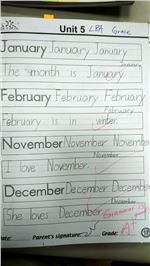 Unit 5 LPA Grace
January January January
January
The month is January.
February February February
February
February is in winter.
November November November
November
I love November.
December December December
December
She loves December.
Grammar
Date: Parent's signature: Grade: A+